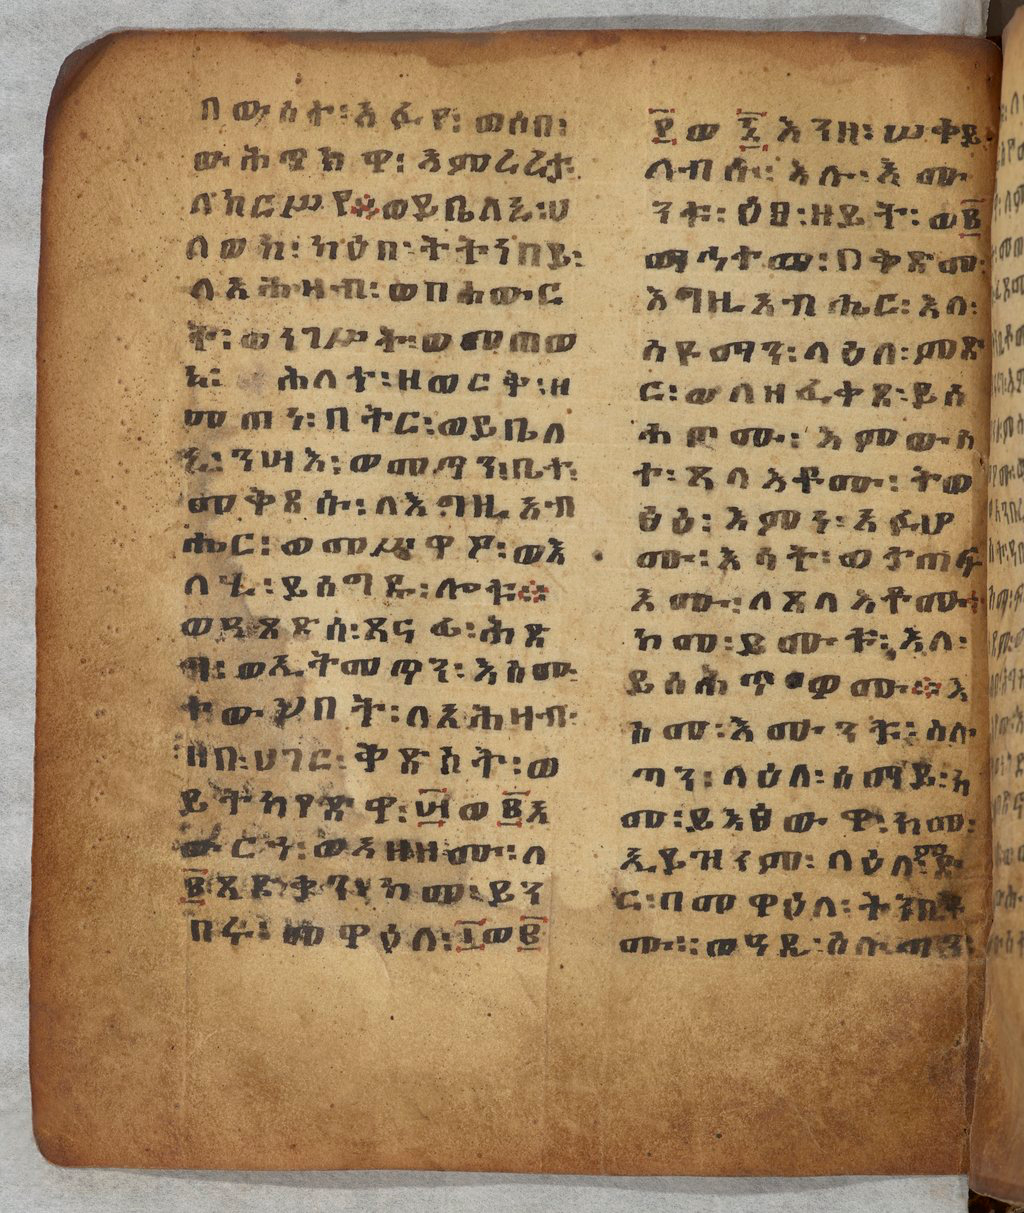 በውስተ፡ አፉየ፡ ወሰበ፡
ውሕጥክዋ፡ እምረረታ
ለከርሥየ፨ ወይቤለኒ፡ ሀ
ለወከ፡ ካዕበ፡ ትትንበይ፡
ለአሕዛብ፡ ወበሐውር
ት፡ ወነገሥት፡ ወመጠወ
ኒ፡ ሕለተ፡ ዘወርቅ፡ ዘ
መጠነ፡ በትር፡ ወይቤለ
ኒ፡ ንሣእ፡ ወመጣን፡ ቤተ፡
መቅደሱ፡ ለእግዚአብ
ሔር፡ ወመሥዋዖ፡ ወእ
ለሂ፡ ይሰግዱ፡ ሎቱ፨
ወዴዴሰ፡ አፍ
ወኢትመጣን፡ እስመ
ተውህበት፡ ለአሕዛብ፡
ሀገር፡ ቅድስት፡ ወ
ይትከየድዋ፡ ፵ወ፪አ
ውርኀ፡ ወእዘዞሙ፡ ለ
፪ ከመ፡ ይን
በሩ፡ መዋዕለ፡ ፲ወ፪
፻ወ፷ እንዘ፡ ሠቅይ
ለብሱ፡ እሉ፡ እሙ
ንቱ፡ ዕፀ፡ ዘይት፡ ወ፪
መኃትው፡ በቅድመ፡
እግዚአብሔር፡ እለ፡
ስዩማን፡ ላዕለ፡ ምድ
ር፡ ወለዘፈቀደ፡ ይስ
ሕጦሙ፡ እምውስ
ተ፡ ጸላእቶሙ፡ ትወ
ፅዕ፡ እምነ፡ አፉሆ
ሙ፡ እሳት፡ ወታጠፍ
እሙ፡ ለጸላእቶሙ፡
ከመ፡ ይሙቱ፡ እለ፡
ይስሕጥዎሙ፨ እ
ስመ፡ እሙንቱ፡ ስሉ
ጣን፡ ላዕለ፡ ሰማይ፡ ከ
መ፡ ይእፀውዋ፡ ከመ፡
ኢይዝንም፡ ላዕለ፡ ምድ
ር፡ በመዋዕለ፡ ትንቢቶ
ሙ፡ ወዓዲ፡ ስሉጣን፡